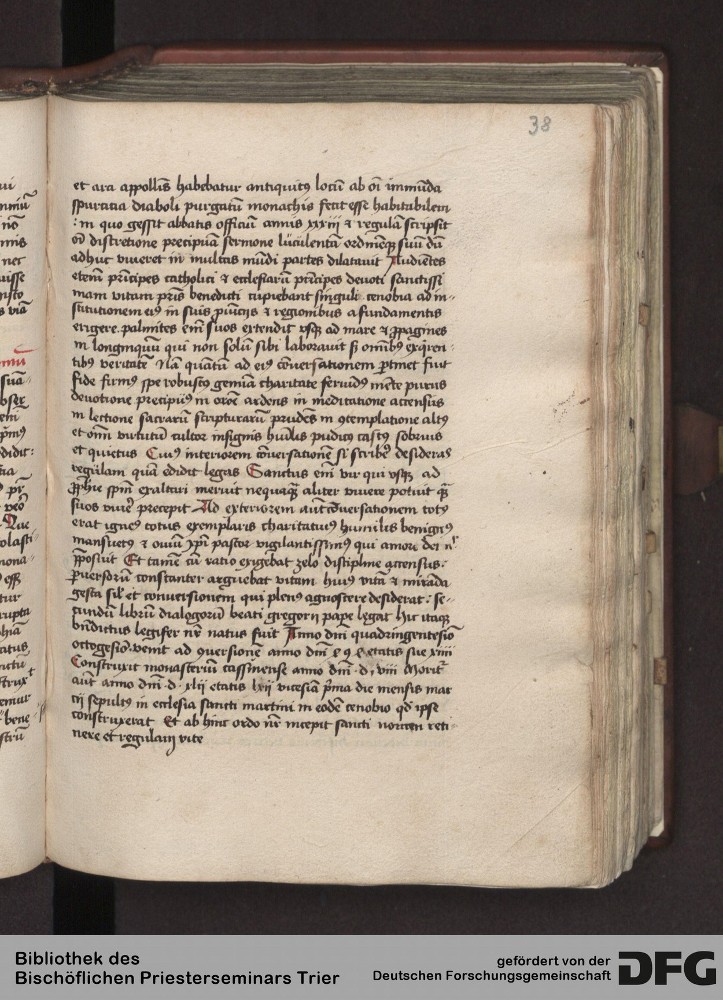 38
et ara appollīs habebatur antiquitꝰ locū ab oī īmūda
spurcicia diaboli purgatū monachis fecit esse habitabilem
: in quo gessit abbatis officiū annis xxxiij & regulā scripsit
discretione precipuā sermone luculentā ordinēqꝫ suū dū
adhuc viueret in multas mūdi partes dilatauit Audiētes
etenī prīcipes catholici & ecclesiarū prīcipes deuoti sanctissi
mam vitam pr̄is benedicti cupiebant singuli cenobia ad in-
stitutionem eiꝰ in suis ꝓuīcijs & regionibus a fundamentis
erigere. palmites em̄ suos extendit vsqꝫ ad mare & ꝓpagines
in longinquū qui non solū sibi laborauit sꝫ omībꝰ exq̄ren-
tibꝰ veritatē Nā quātū ad eiꝰ cōuersationem ꝑtinet fuit
fide firmꝰ spe robustꝰ gemīa charitate feruidꝰ mēte purus
deuotione precipuꝰ in orōe ardens in meditatione accensus
in lectione sacrarū scripturarū prudēs in ꝯtemplatione altꝰ
et omī virtutū cultor insignis hūilis pudicꝰ castꝰ sobrius
et quietus Cuiꝰ interiorem cōuersationē si scribē desideras
regulam quā edidit legas Sanctus em̄ vir qui vsqꝫ ad
ꝓphīe spm̄ exaltari meruit nequaqꝫ aliter viuere potuit q̄ꝫ
suos viuē precepit Ad exteriorem aut cōuersationem totꝰ
erat igneꝰ totus exemplaris charitatiuꝰ humilis benignꝰ
mansuetꝰ & ouiū xpī pastor vigilantissimꝰ qui amore dei
ꝓposuit Et tamē cū ratio exigebat zelo discipline accensus:
ꝑuersorū constanter arguebat vitam huiꝰ vitā & mirāda
gesta sil̄ et conuersionem qui pleniꝰ agnoscere desiderat: se-
cundū librū dialogorū beati gregorij pape legat hic itaqꝫ
bn̄dictus legifer nr̄ natus fuit Anno dnī quadringentesīo
octogesīo. venit ad ꝯuersionē anno dnī etatis sue xiiij
Construxit monasteriū cassinense anno dnī. d. viij Moritr̄
aūt anno dnī. d. xlij etatis lxij vicesīa pr̄ma die mensis mar
cij sepultꝰ in ecclesia sancti martini in eodē cenobio qd̄ ipse
construxerat Et ab hinc ordo nr̄ incepit sancti nomen reti
nere et regulam vite
Bibliothek des
Bischöflichen Priesterseminars Trier
gefördert von der
Deutschen Forschungsgemeinschaft
DFG